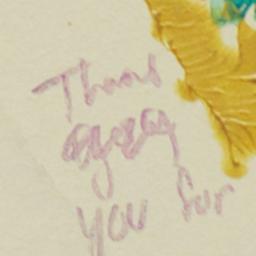 Thans
you for